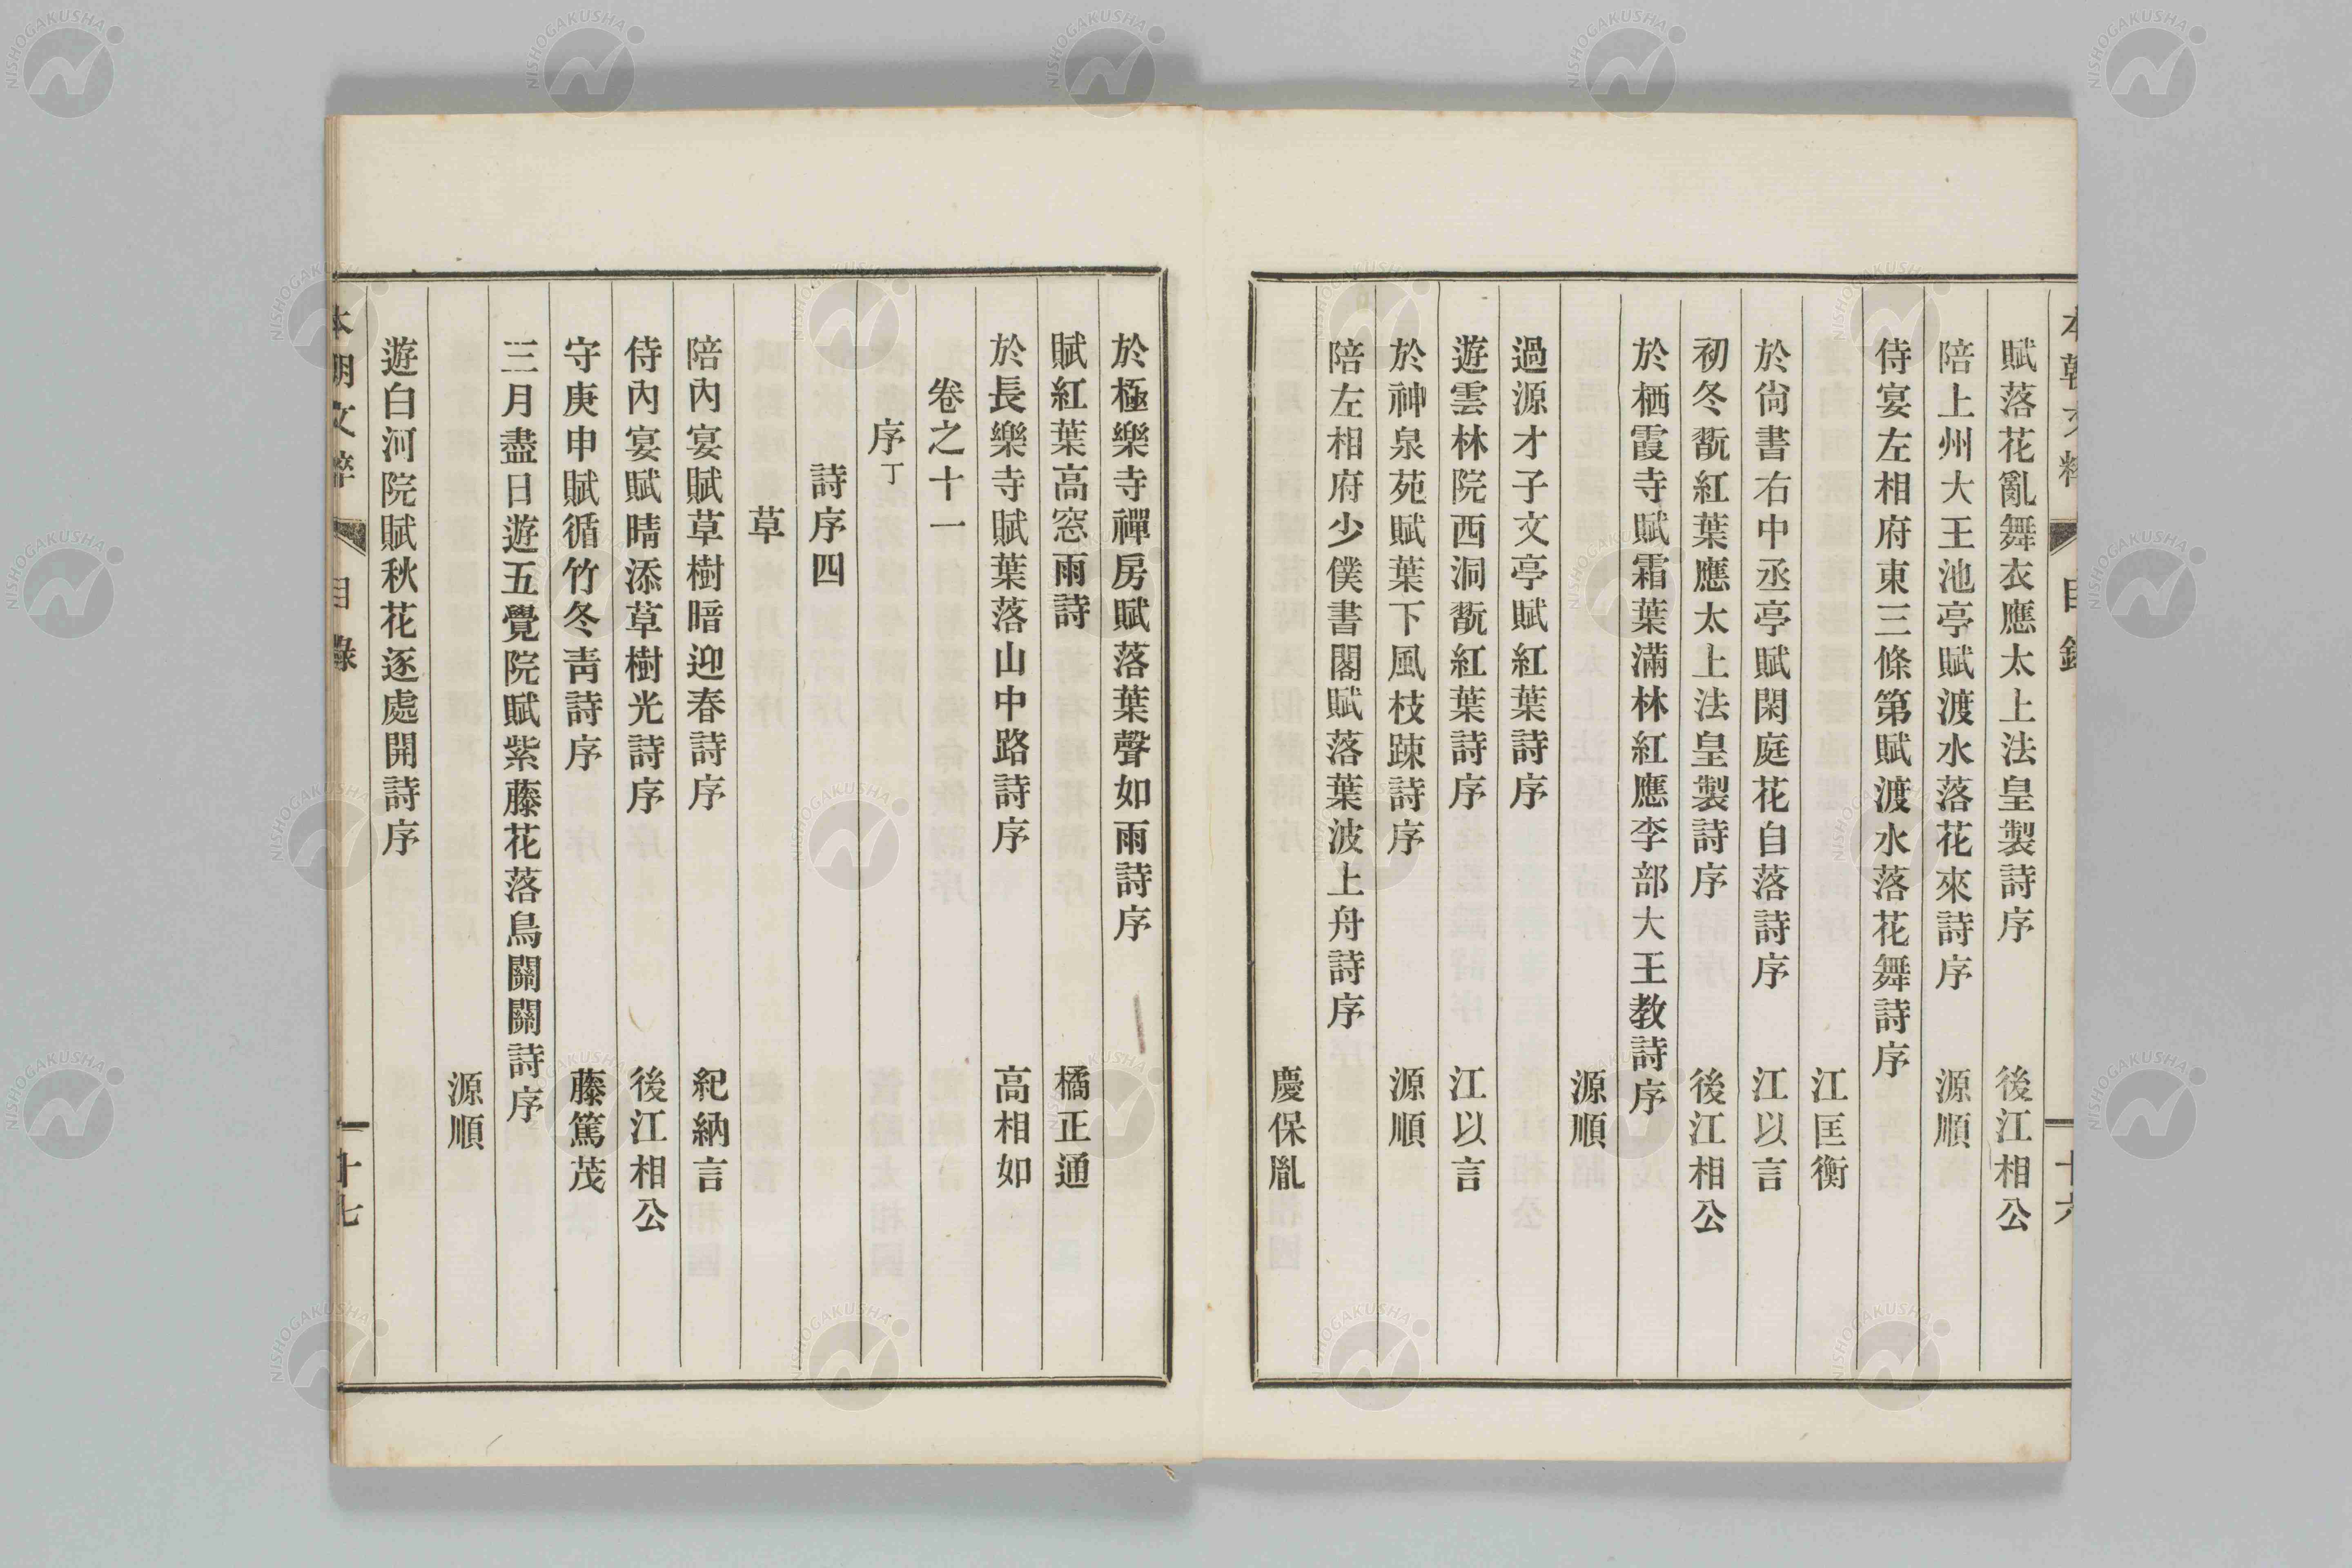 賦落花亂舞衣應太上法皇製詩序 後江相公
陪上州大王池亭賦渡水落花來詩序 源順
侍宴左相府東三條第賦渡水落花舞詩序
江匡衡
於尙書右中丞亭賦閑庭花自落詩序 江以言
初冬翫紅葉應太上法皇製詩序 後江相公
於栖霞寺賦霜葉滿林紅應李部大王教詩序
源順
過源才子文亭賦紅葉詩序
遊雲林院西洞翫紅葉詩序 江以言
於神泉苑賦葉下風枝踈詩序 源順
陪左相府少僕書閣賦落葉波上舟詩序
慶保胤
於極樂寺禪房賦落葉聲如雨詩序
賦紅葉高窓雨詩 橘正通
於長樂寺賦葉落山中路詩序 高相如
卷之十一
序丁
詩序四
草
陪內宴賦草樹暗迎春詩序 紀納言
侍內宴賦晴添草樹光詩序 後江相公
守庚申賦循竹冬靑詩序 藤篤茂
三月盡日遊五覺院賦紫藤花落鳥關關詩序
源順
遊白河院賦秋花逐處開詩序
本朝文粹 目錄 十七
NISHOGAKUSHA